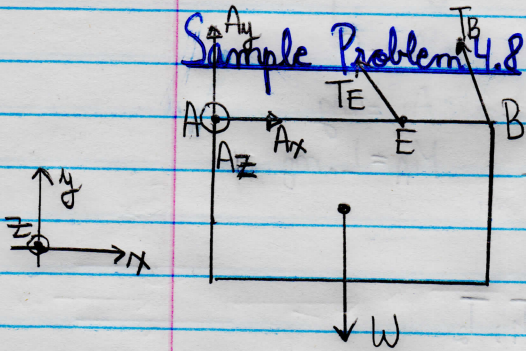 Ay
Sample Problem 4.8
TB
TE
A
Ax
E
B
Az
y
z
x
W